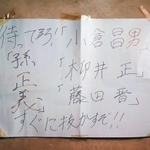 待ってろ!「小倉昌男」
「孫正義」
「柳井正」
「藤田晋」
すぐに抜かすぞ!!